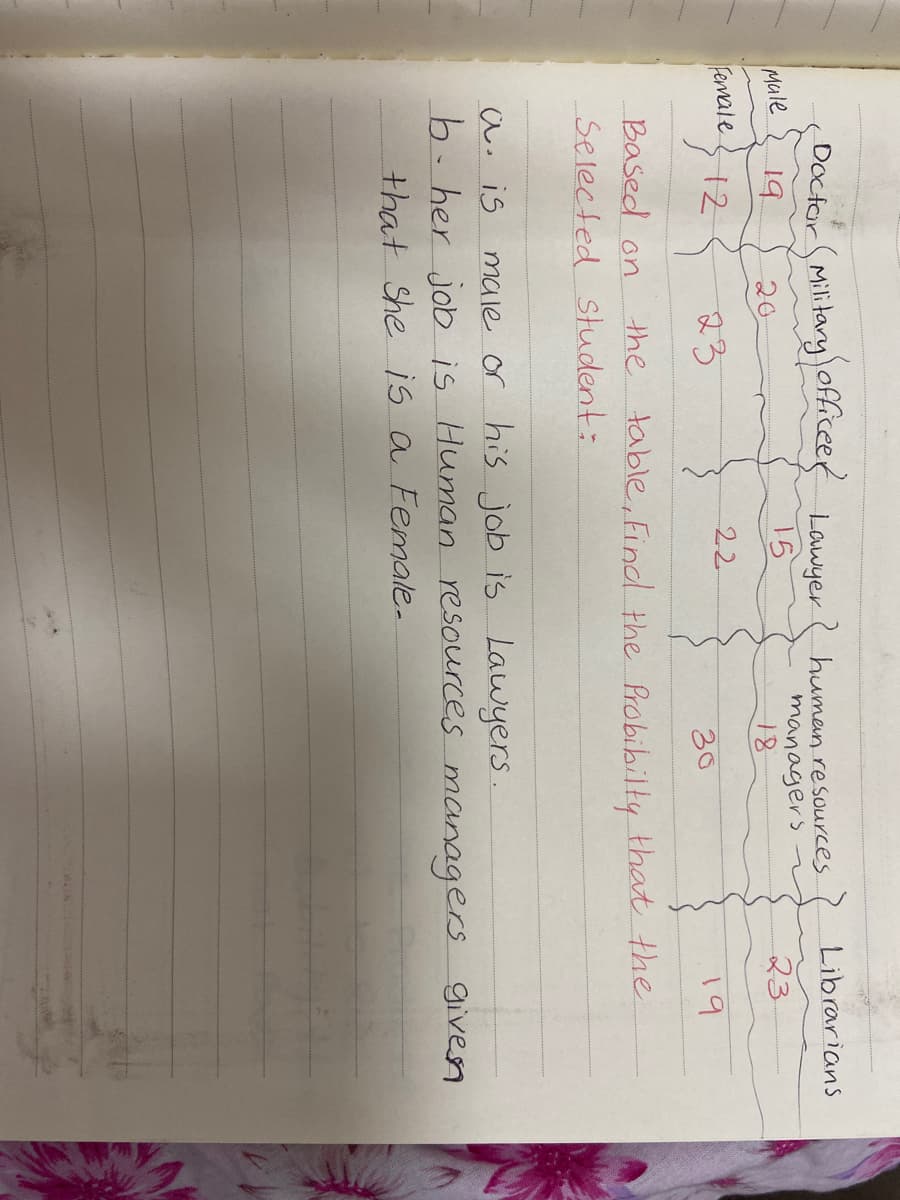 Doctor Military officeer Lawyer human resources Librarians
managers
Male 19 20 15 18 23
Female 12 23 22 30 19
Based on the table, Find the Probibilty that the
Selected student:
a. is male or his job is Lawyers.
b. her job is Human resources managers given
that she is a Female.